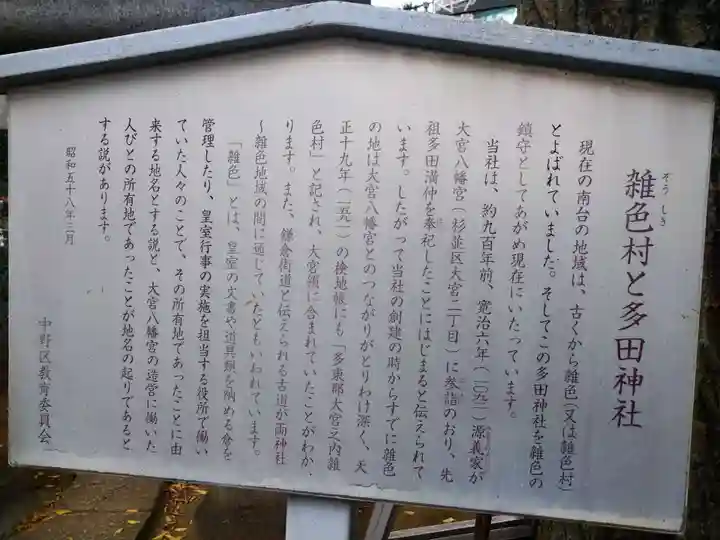 雑色村と多田神社
ぞうしき
現在の南台の地域は、古くから雑色(又は雑色村)
とよばれていました。そしてこの多田神社を雑色の
鎮守としてあがめ現在にいたっています。
当社は、約九百年前、寛治六年(一〇九二)源義家が
大宮八幡宮(杉並区大宮二丁目)に参詣のおり、先
祖多田満仲を奉祀したことにはじまると伝えられて
います。したがって当社の創建の時からすでに雑色
の地は大宮八幡宮とのつながりがとりわけ深く、天
正十九年(一五九一)の検地帳にも「多東郡大宮之内雑
色村」と記され、大宮領に含まれていたことがわか
ります。また、鎌倉街道と伝えられる古道が両神社
〜雑色地域の間に通じていたともいわれています。
「雑色」とは、皇室の文書や道具類を納める倉を
管理したり、皇室行事の実施を担当する役所で働い
ていた人々のことで、その所有地であったことに由
来する地名とする説と、大宮八幡宮の造営に働いた
人びとの所有地であったことが地名の起りであると
する説があります。
昭和五十八年三月
中野区教育委員会